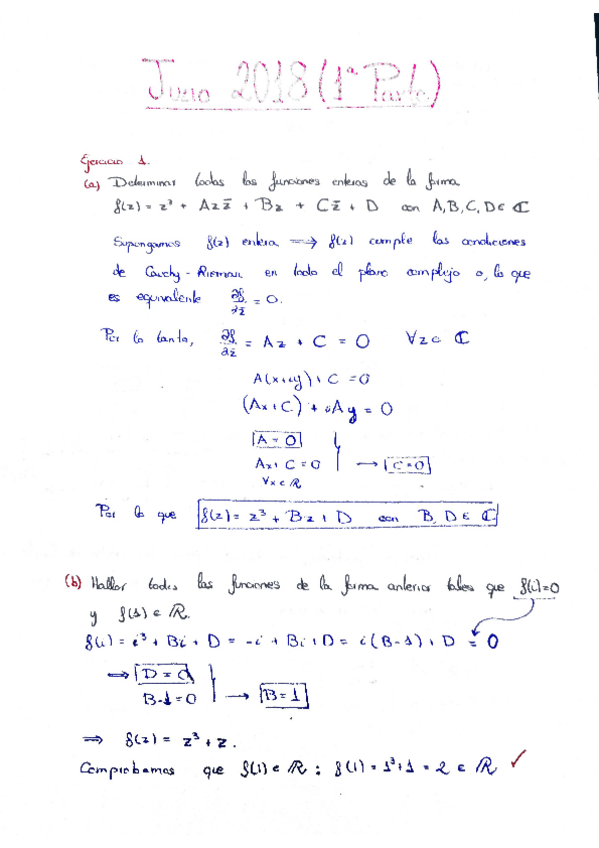 Junio 2018 (1ª Parte)
Ejercicio 1.
(a) Determinar todas las funciones enteras de la forma
f(z) = z³ + Az z̄ + Bz + C z̄ + D con A, B, C, D ∈ ℂ
Supongamos f(z) entera ⟹ f(z) cumple las condiciones
de Cauchy-Rieman en todo el plano complejo o, lo que
es equivalente ∂f/∂z̄ = 0.
Por lo tanto, ∂f/∂z̄ = Az + C = 0 ∀z ∈ ℂ
A(x+iy) + C = 0
(Ax + C) + iAy = 0
A = 0
Ax + C = 0 → C = 0
∀x ∈ ℝ
Por lo que f(z) = z³ + B·z + D con B, D ∈ ℂ
(b) Hallar todas las funciones de la forma anterior tales que f(i)=0
y f(1) ∈ ℝ.
f(i) = i³ + Bi + D = -i + Bi + D = i(B-1) + D = 0
⟹ D = 0
B-1 = 0 → B = 1
⟹ f(z) = z³ + z.
Comprobamos que f(1) ∈ ℝ : f(1) = 1³+1 = 2 ∈ ℝ ✓